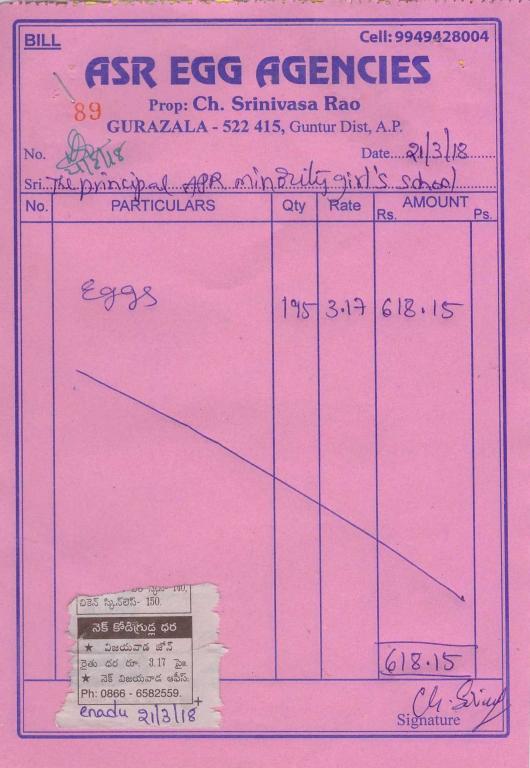 BILL
Cell: 9949428004
ASR EGG AGENCIES
89
Prop: Ch. Srinivasa Rao
GURAZALA - 522 415, Guntur Dist, A.P.
No.
Date....21/3/18
Sri. The principal APR minority girl's school
No. PARTICULARS Qty Rate AMOUNT
Rs. Ps.
Eggs 195 3.17 618.15
చికెన్ స్కిన్‌లెస్- 150.
నెక్ కోడిగ్రుడ్ల ధర
★ విజయవాడ జోన్
రైతు ధర రూ. 3.17 పై.
★ నెక్ విజయవాడ ఆఫీస్
Ph: 0866 - 6582559.
enadu 21/3/18
618.15
Ch. Sriny
Signature